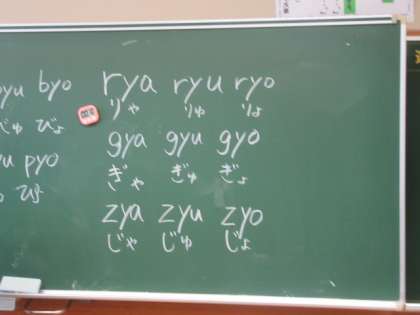 byu byo rya ryu ryo
びゅ びょ りゃ りゅ りょ
pyu pyo gya gyu gyo
ぴょ ぎゃ ぎゅ ぎょ
zya zyu zyo
じゃ じゅ じょ